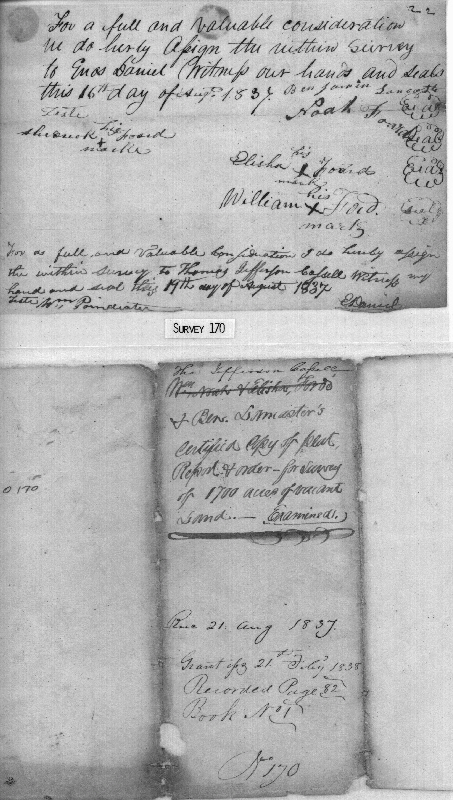 22
For a full and valuable consideration
we do herby assign the within survey
to Enos Daniel Witness our hands and seals
this 16th day of Augt 1837.
Teste
Noah
his
mark
Elisha his X Foard
mark
William his X Ford.
mark
For a full and valuable consideration I do herby assign
the within survey to Thomas Jefferson Casell Witness my
hand and seal this 19th day of August 1837
Teste Wm Poindexter
E Daniel
SURVEY 170
Tho Jefferson Casell
Wm Noah & Elisha Fords
& Ben. Lancaster's
Certified Copy of plat,
Report & order for Survey
of 1700 acres of vacant
Land. — Examined.
0 170
Rec 21. Aug 1837.
Grant 21st Feby 1838
Recorded Page 82
Book No 1
No 170
2